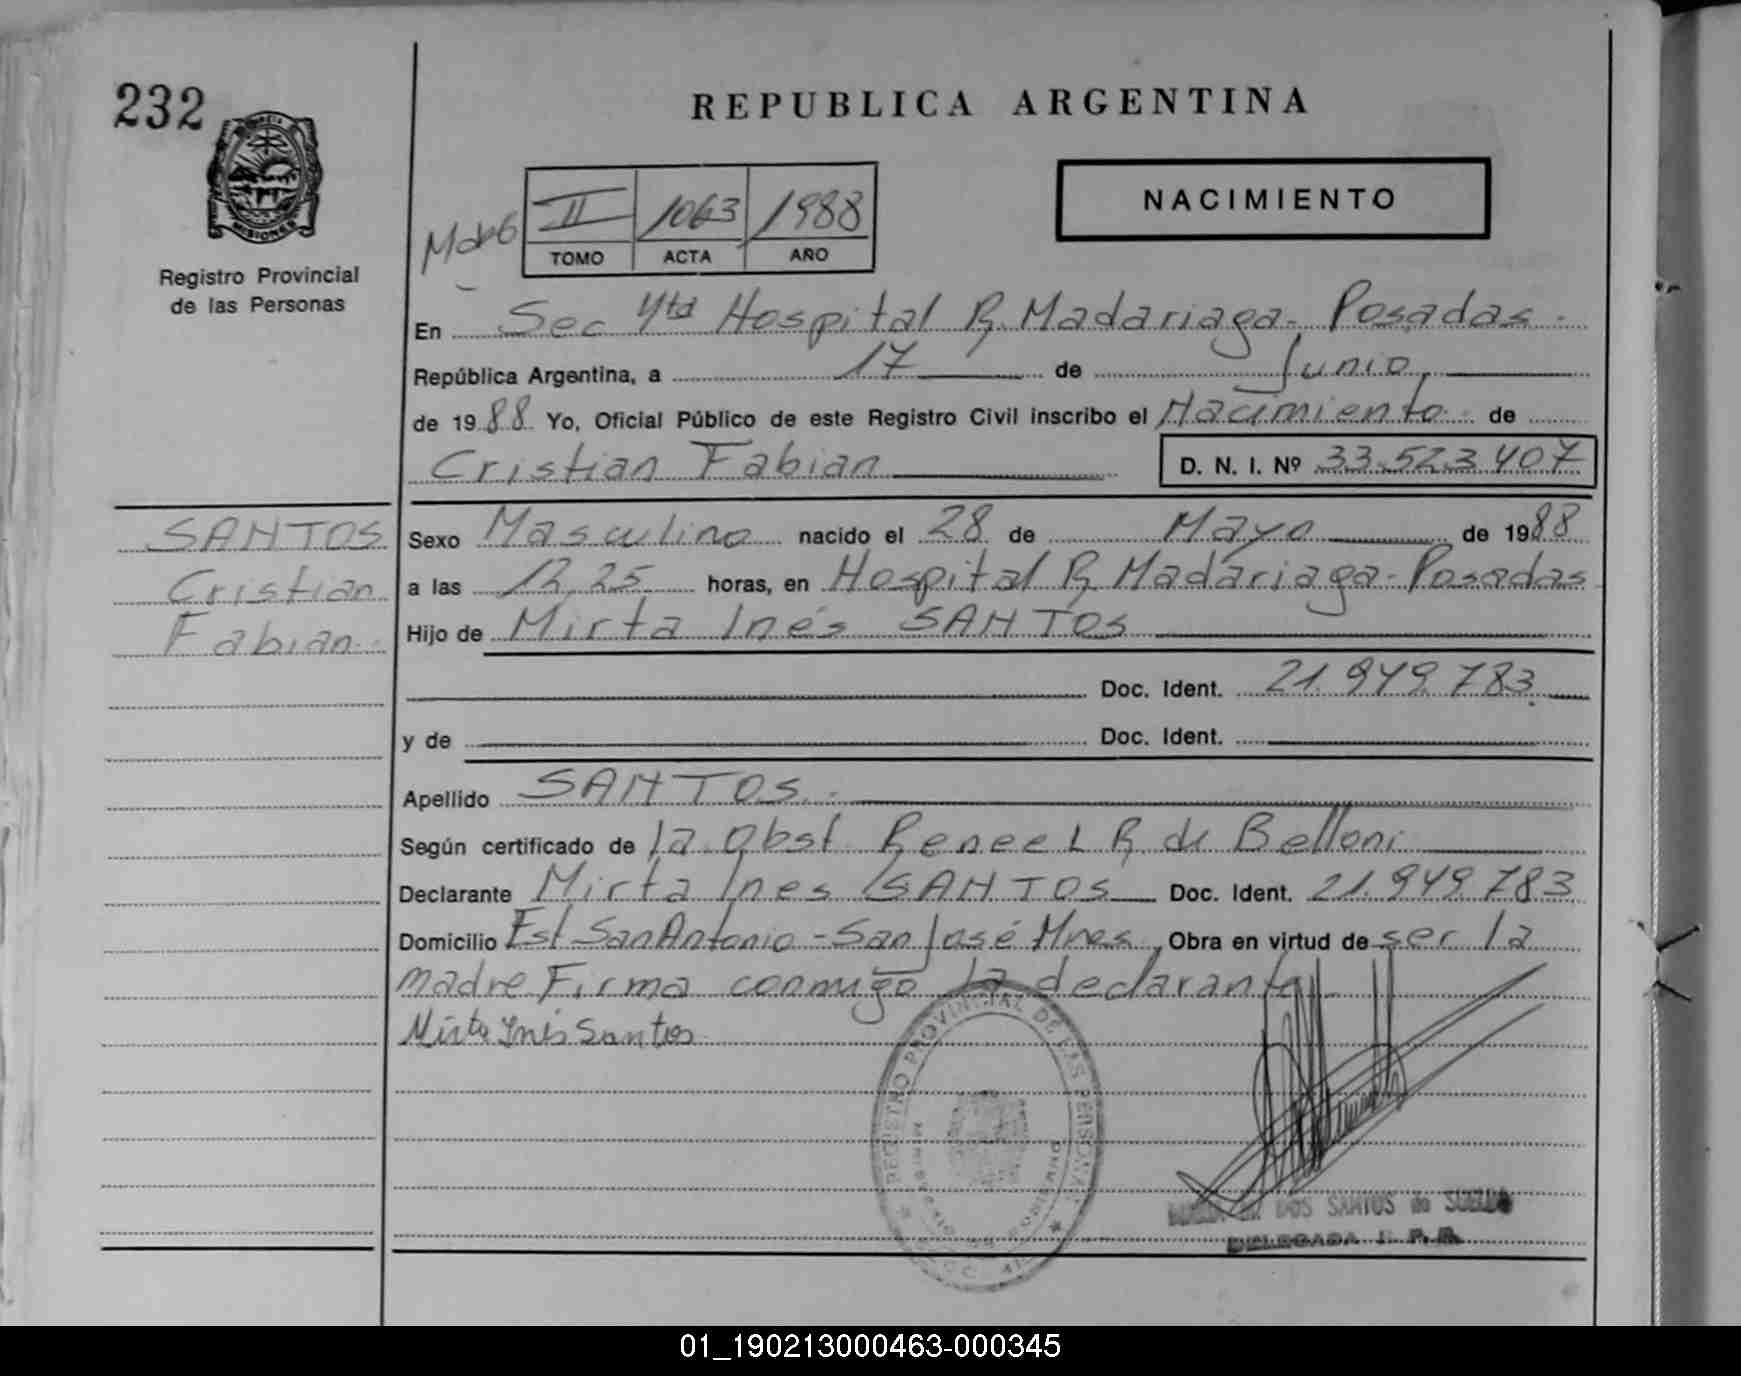 232
REPUBLICA ARGENTINA
PROVINCIA
MISIONES
Registro Provincial
de las Personas
II 1063 1988
TOMO ACTA AÑO
NACIMIENTO
En Sec 4ta Hospital R. Madariaga. Posadas.
República Argentina, a 17 de Junio
de 1988 Yo, Oficial Público de este Registro Civil inscribo el Nacimiento de
Cristian Fabian D. N. I. Nº 33.523.407
SANTOS
Cristian
Fabian
Sexo Masculino nacido el 28 de Mayo de 1988
a las 12,25 horas, en Hospital R. Madariaga-Posadas
Hijo de Mirta Inés SANTOS
Doc. Ident. 21.949.783
y de Doc. Ident.
Apellido SANTOS.
Según certificado de la Obst Renee L R. de Belloni
Declarante Mirta Ines SANTOS Doc. Ident. 21.949.783
Domicilio Est San Antonio - San José Mnes, Obra en virtud de ser la
madre. Firma conmigo la declarante
Mirta Inés Santos
REGISTRO PROVINCIAL DE LAS PERSONAS
MINISTERIO DE GOBIERNO
DOS SANTOS de
DELEGADA R. P. P.
01_190213000463-000345